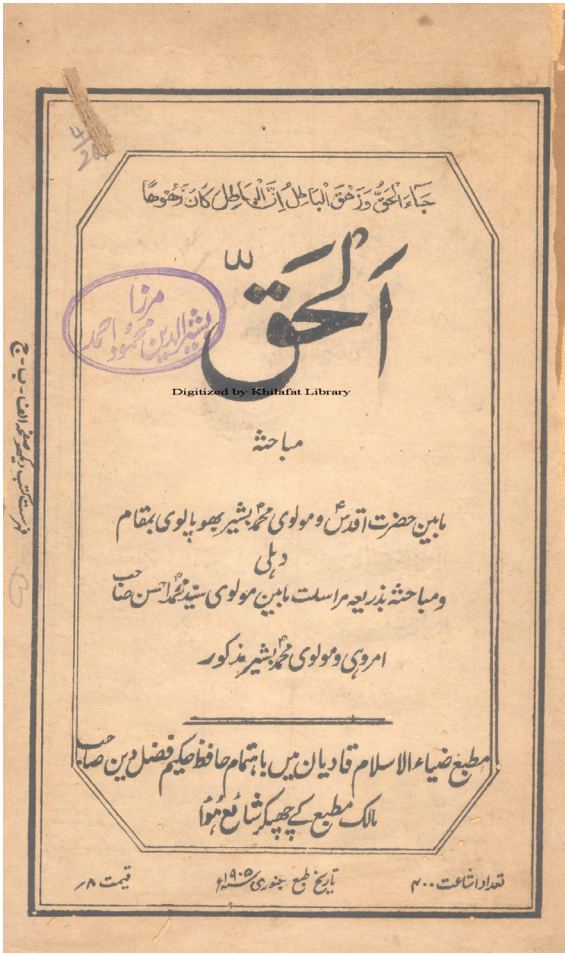 جَاءَ الْحَقُّ وَزَهَقَ الْبَاطِلُ اِنَّ الْبَاطِلَ كَانَ زَهُوقًا
اَلحَقّ
مرزا
بشیر الدین محمود احمد
Digitized by Khilafat Library
مباحثہ
مابین حضرت اقدسؑ و مولوی محمدؐ بشیر بھوپالوی بمقام
دہلی
و مباحثہ بذریعہ مراسلت مابین مولوی سیّد محمدؐ احسن صاحب
امروہی و مولوی محمدؐ بشیر مذکور
مطبع ضیاء الاسلام قادیان میں باہتمام حافظ حکیم فضل دین صاحب
مالک مطبع کے چھپکر شائع ہُوا
تعداد اشاعت ۴۰۰
تاریخ طبع جنوری ۱۹۰۵ء
قیمت ۸؍
فہرست کتب دیکھو صفحہ الف - ب - ج